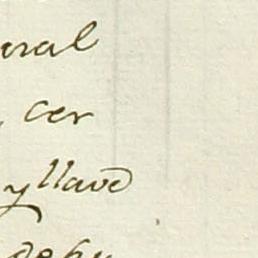 ural
cer
y llave